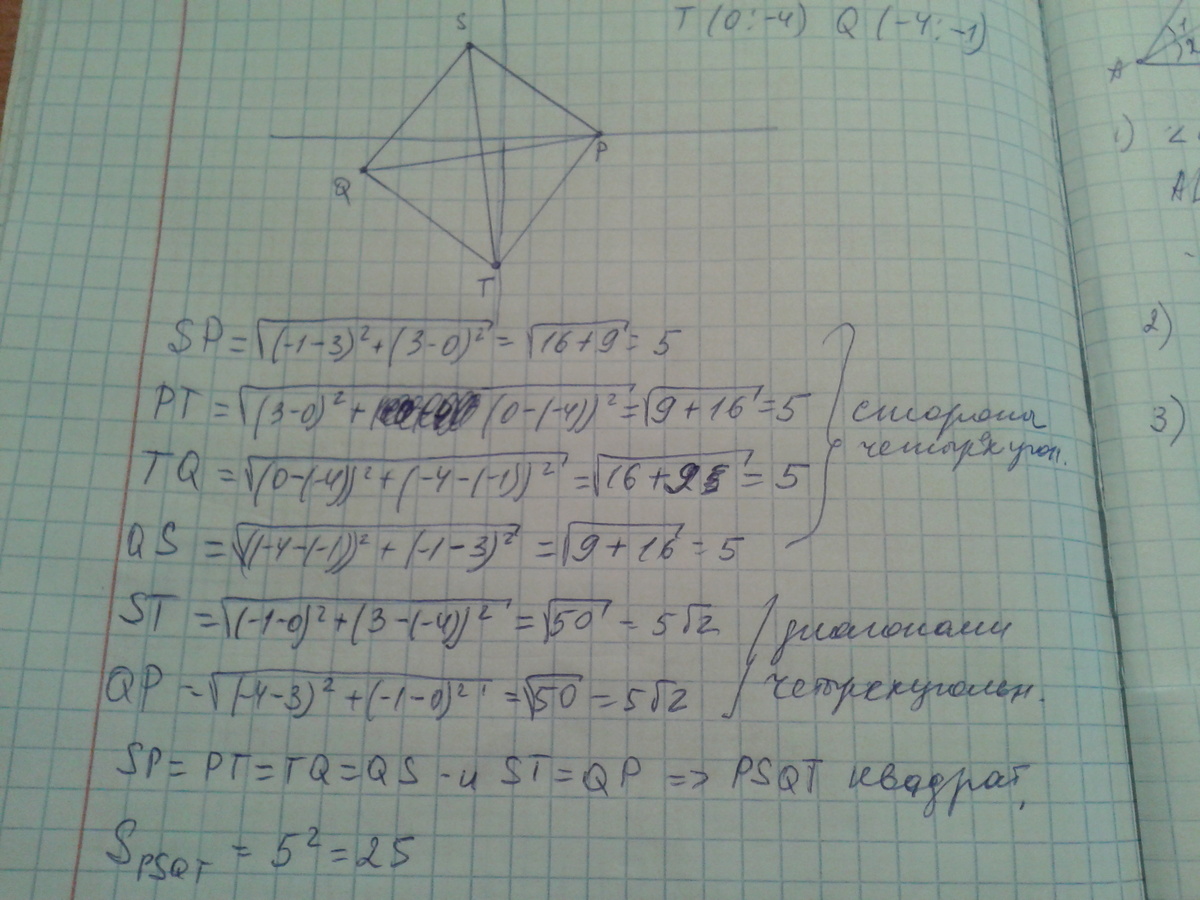 T (0; -4) Q (-4; -1)
S
P
Q
T
SP = √((-1-3)²+(3-0)²) = √(16+9) = 5
PT = √((3-0)² + (0-(-4))²) = √(9+16) = 5
TQ = √((0-(-4))²+(-4-(-1))²) = √(16+9) = 5
QS = √((-4-(-1))² + (-1-3)²) = √(9+16) = 5
стороны
четырёхугон.
ST = √((-1-0)²+(3-(-4))²) = √50 = 5√2
QP = √((-4-3)²+(-1-0)²) = √50 = 5√2
диагонали
четырехугольн.
SP = PT = TQ = QS - и ST = QP => PSQT квадрат.
S PSQT = 5² = 25
A
1
2
1) <
2)
3)